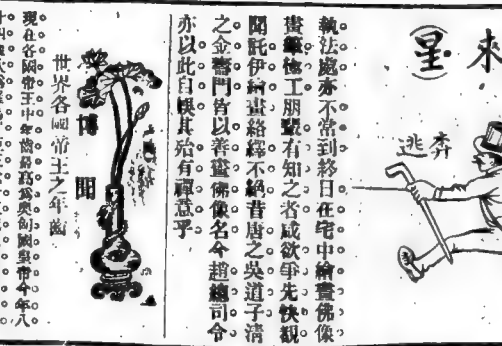 來
(星)
奔逃
執法處亦不常到終日在宅中繪畫佛像
畫筆極工朋輩有知之者咸欲爭先快覩
聞託伊繪畫絡繹不絕昔唐之吳道子清
之金壽門皆以善畫佛像名今趙總司令
亦以此自娛其殆有禪意乎
博聞
世界各國帝王之年齒
現在各國帝王中年齒最高為奧匈國皇帝今年八
十四